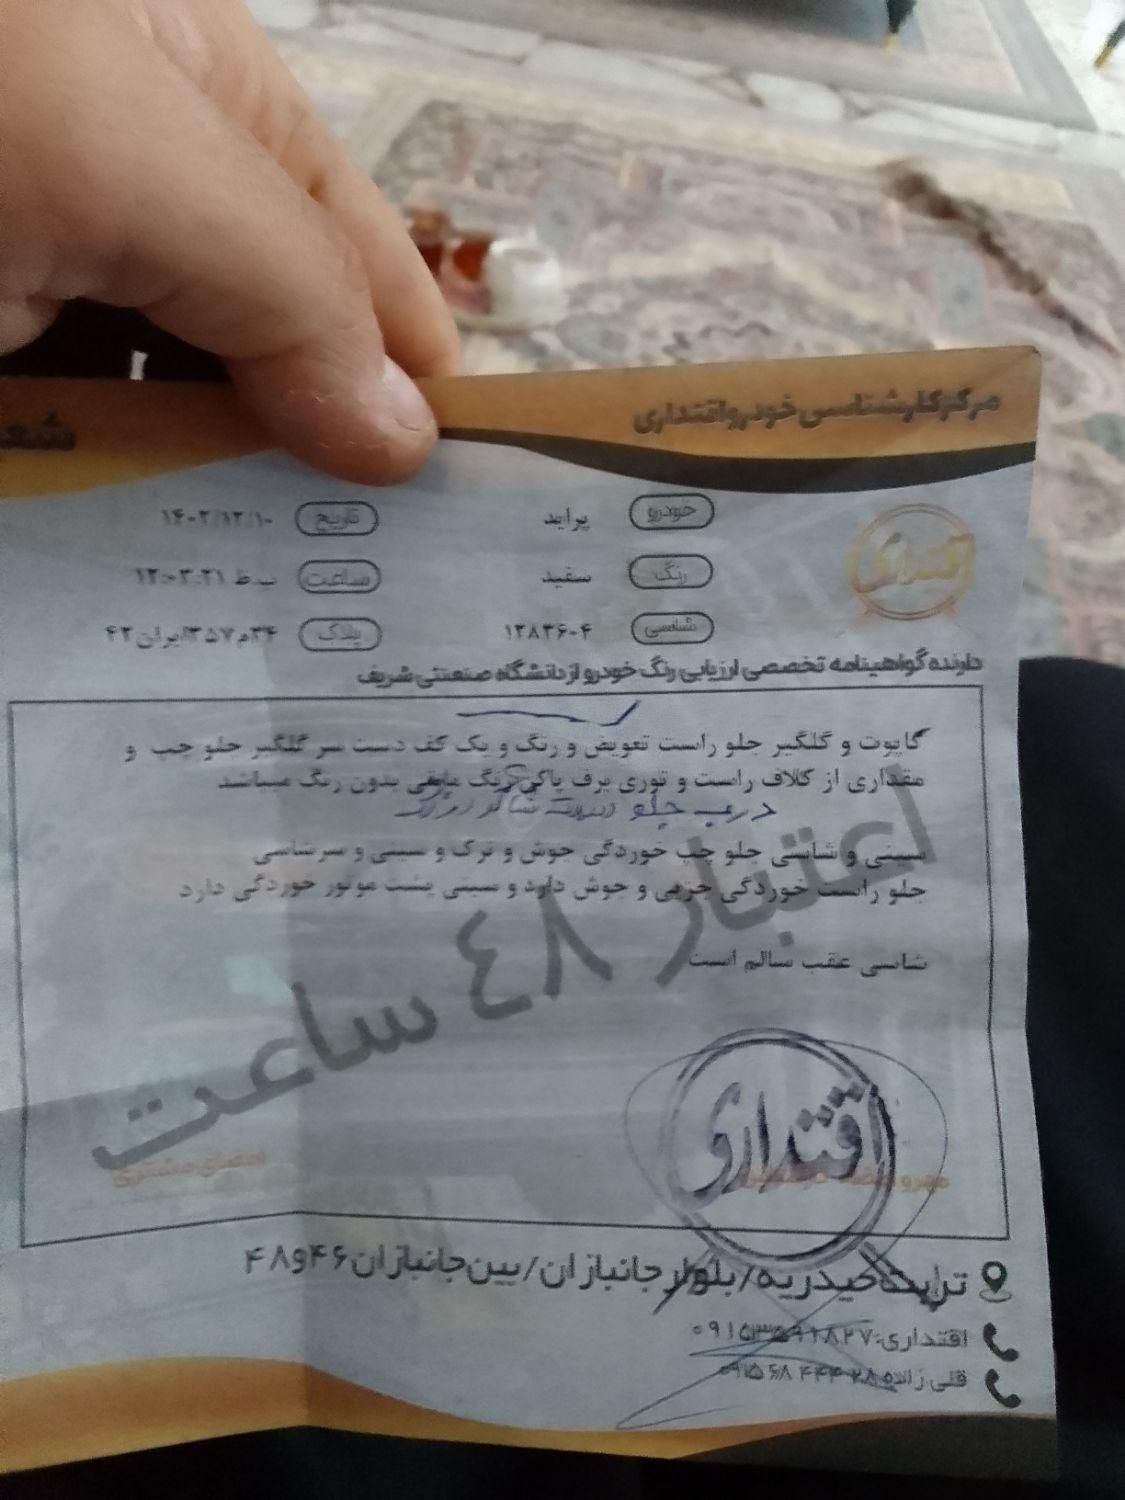 مرکز کارشناسی خودرو اقتداری
اقتداری
خودرو پراید تاریخ ۱۴۰۲/۱۲/۱۰
رنگ سفید ساعت ۱۲:۰۳:۲۱ ب.ظ
شاسی ۱۲۸۳۶۰۴ پلاک ۳۴م۳۵۷ایران۴۲
دارنده گواهینامه تخصصی ارزیابی رنگ خودرو از دانشگاه صنعتی شریف
کاپوت و گلگیر جلو راست تعویض و رنگ و یک کف دست سر گلگیر جلو چپ و
مقداری از کلاف راست و توری برف پاکن رنگ مابقی بدون رنگ میباشد
درب جلو راست
سینی و شاسی جلو چپ خوردگی جوش و ترک و سینی و سرشاسی
جلو راست خوردگی جزیی و جوش دارد و سینی پشت موتور خوردگی دارد
شاسی عقب سالم است
اعتبار ٤٨ ساعت
امضای مشتری
مهر و امضاء
اقتداری
تربت حیدریه/بلوار جانبازان/بین جانبازان ۴۶و۴۸
اقتداری: ۰۹۱۵۳۵۹۱۸۲۷
قلی زاده